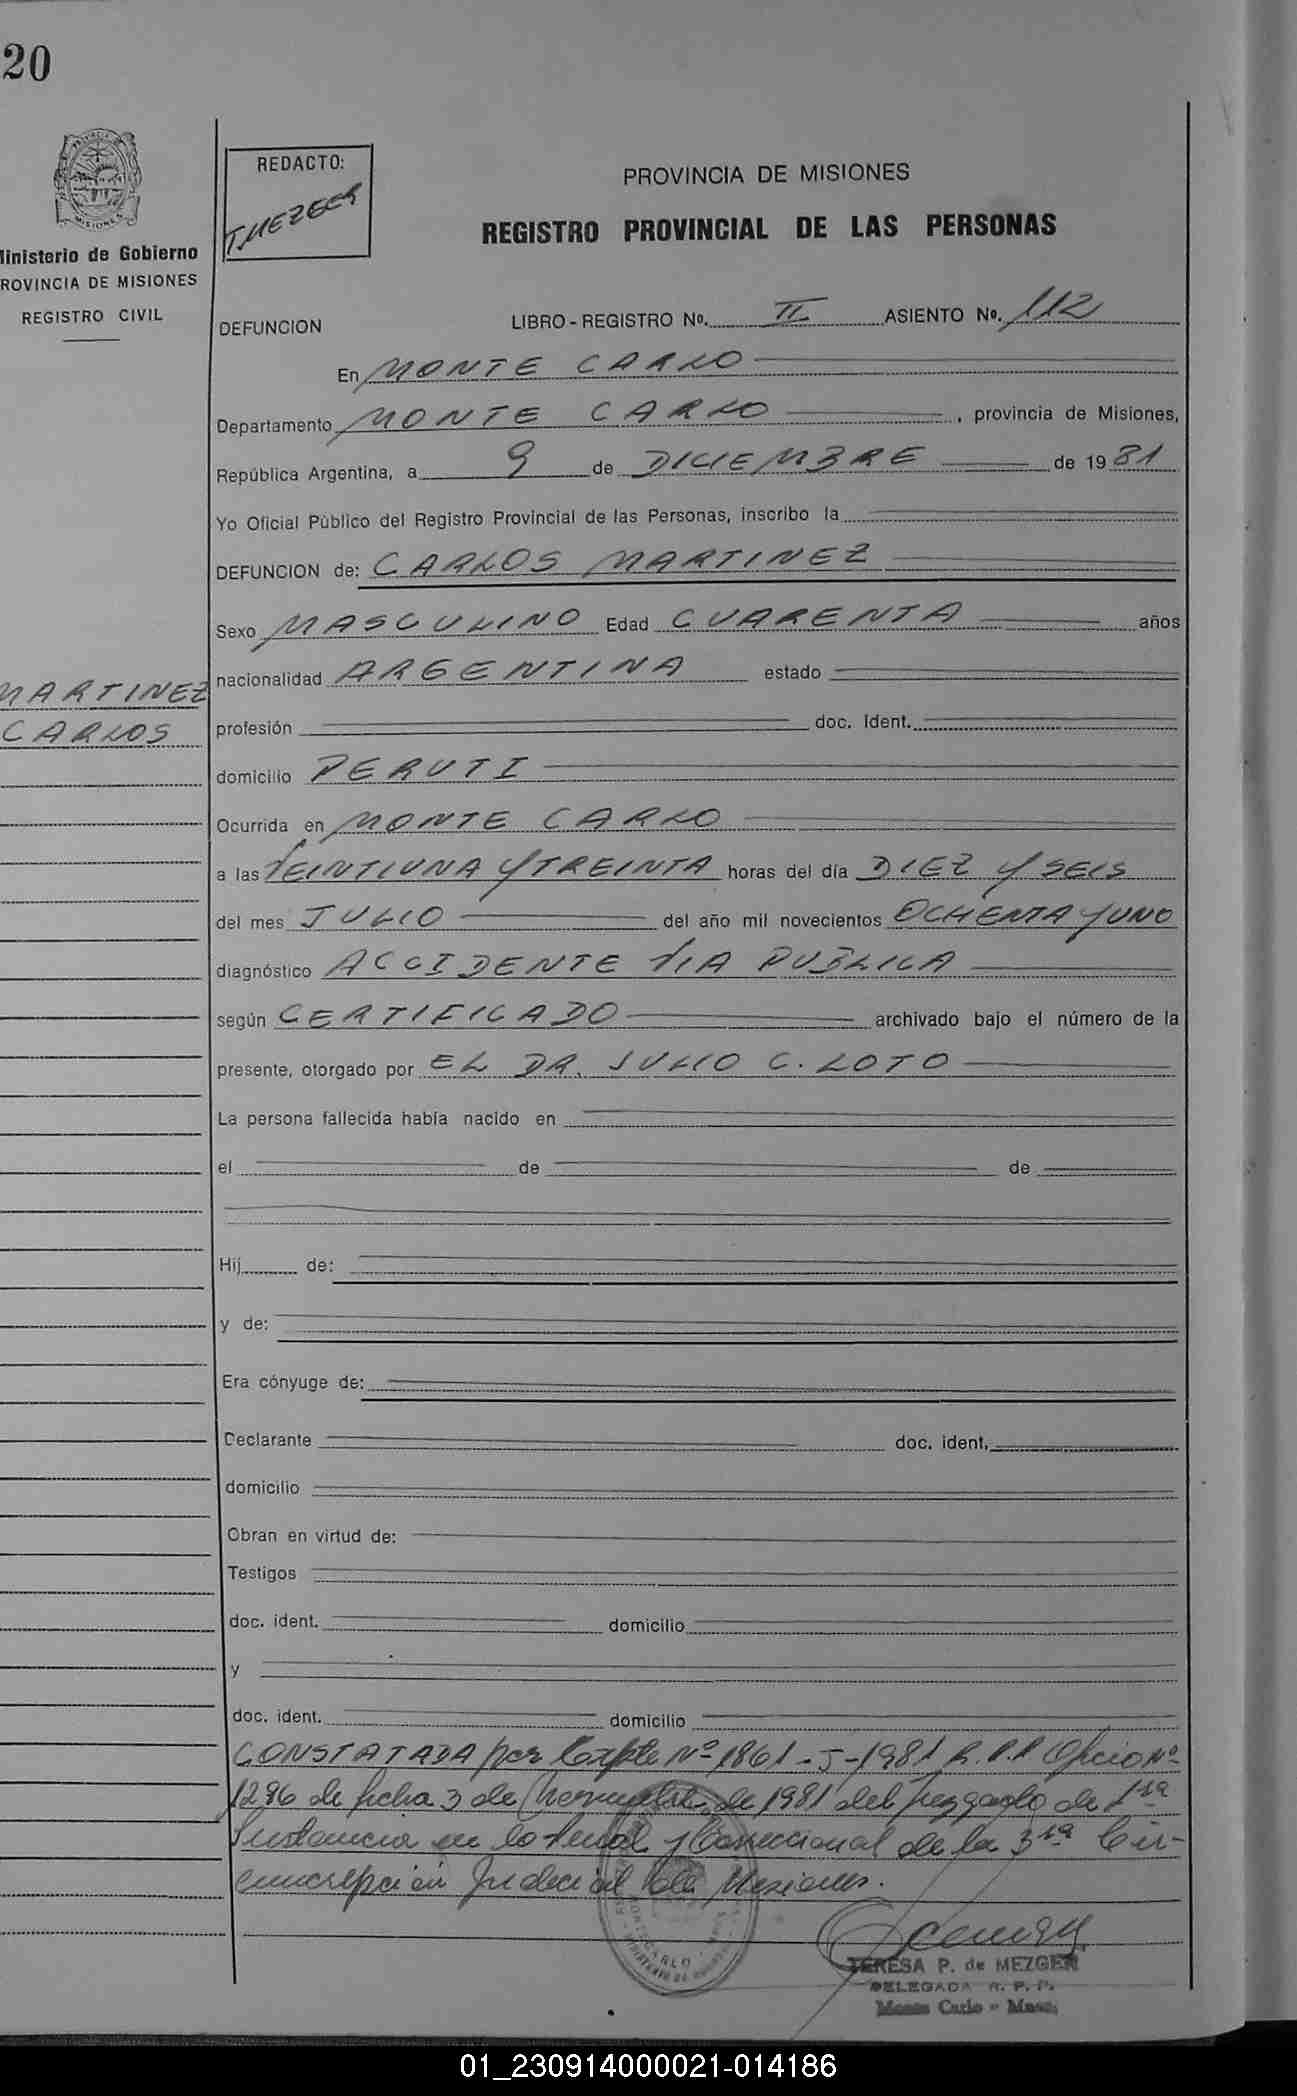 20
REDACTO:
T. MEZGER
PROVINCIA DE MISIONES
REGISTRO PROVINCIAL DE LAS PERSONAS
Ministerio de Gobierno
PROVINCIA DE MISIONES
REGISTRO CIVIL
DEFUNCION LIBRO - REGISTRO No. II ASIENTO No. 112
En MONTE CARLO
Departamento MONTE CARLO, provincia de Misiones,
República Argentina, a 9 de DICIEMBRE de 1981
Yo Oficial Público del Registro Provincial de las Personas, inscribo la
DEFUNCION de: CARLOS MARTINEZ
Sexo MASCULINO Edad CUARENTA años
MARTINEZ
nacionalidad ARGENTINA estado
CARLOS
profesión doc. Ident.
domicilio PERUTI
Ocurrida en MONTE CARLO
a las VEINTIUNA Y TREINTA horas del día DIEZ Y SEIS
del mes JULIO del año mil novecientos OCHENTA Y UNO
diagnóstico ACCIDENTE VIA PUBLICA
según CERTIFICADO archivado bajo el número de la
presente, otorgado por EL DR. JULIO C. LOTO
La persona fallecida había nacido en
el de de
Hij de:
y de:
Era cónyuge de:
Declarante doc. ident.
domicilio
Obran en virtud de:
Testigos
doc. ident. domicilio
y
doc. ident. domicilio
CONSTATADA por Expte Nº 1861-J-1981 R.P.P. Oficio Nº
1296 de fecha 3 de de 1981 del Juzgado de 1ra
Instancia en lo Penal y Correccional de la 3ra Cir-
cunscripción Judicial de Misiones.
TERESA P. de MEZGER
DELEGADA R. P. P.
Monte Carlo - Mnes.
01_230914000021-014186